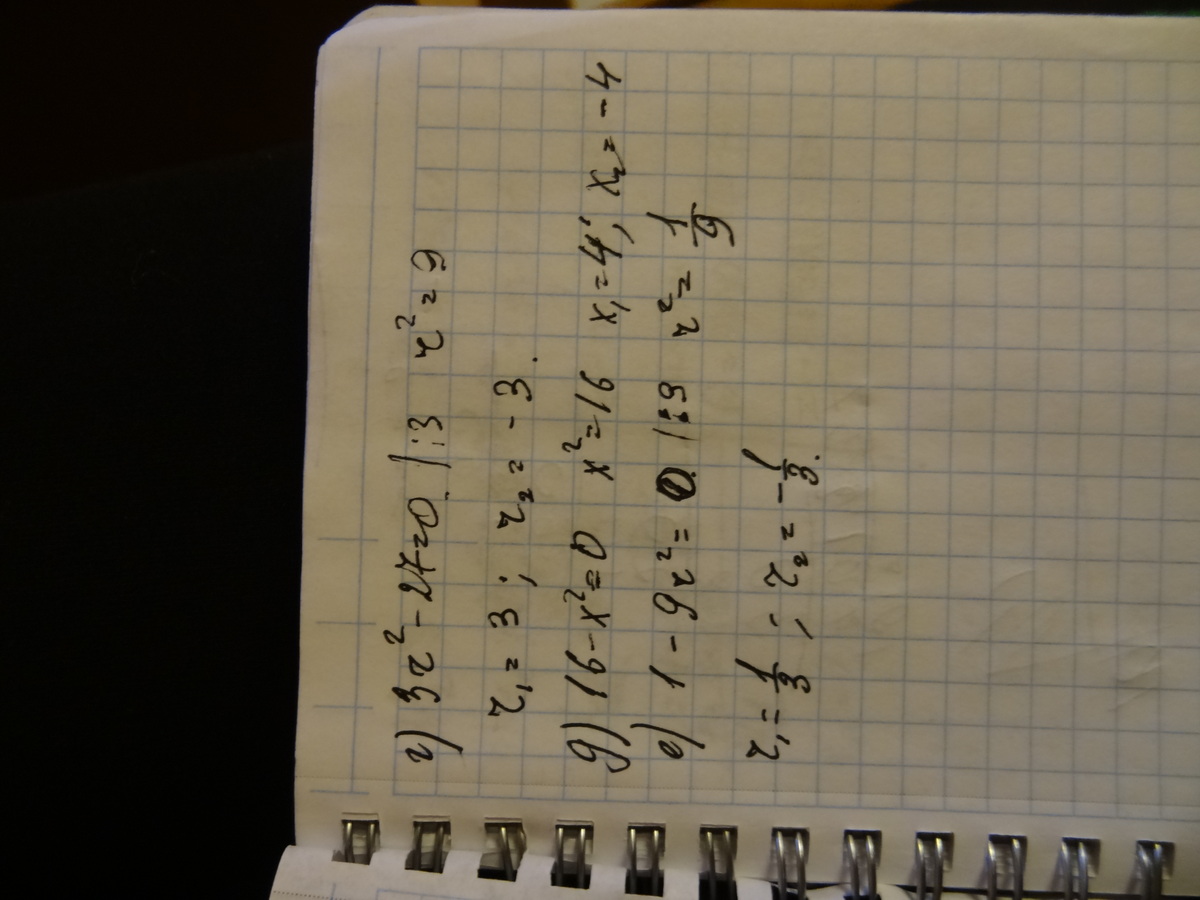 г) 3z² - 27 = 0. | :3 z² = 9
z₁ = 3 ; z₂ = - 3 .
д) 16 - x² = 0 x² = 16 x₁ = 4 ; x₂ = - 4
е) 1 - 9z² = 0. | :9 z² = 1/9
z₁ = 1/3 ; z₂ = - 1/3 .